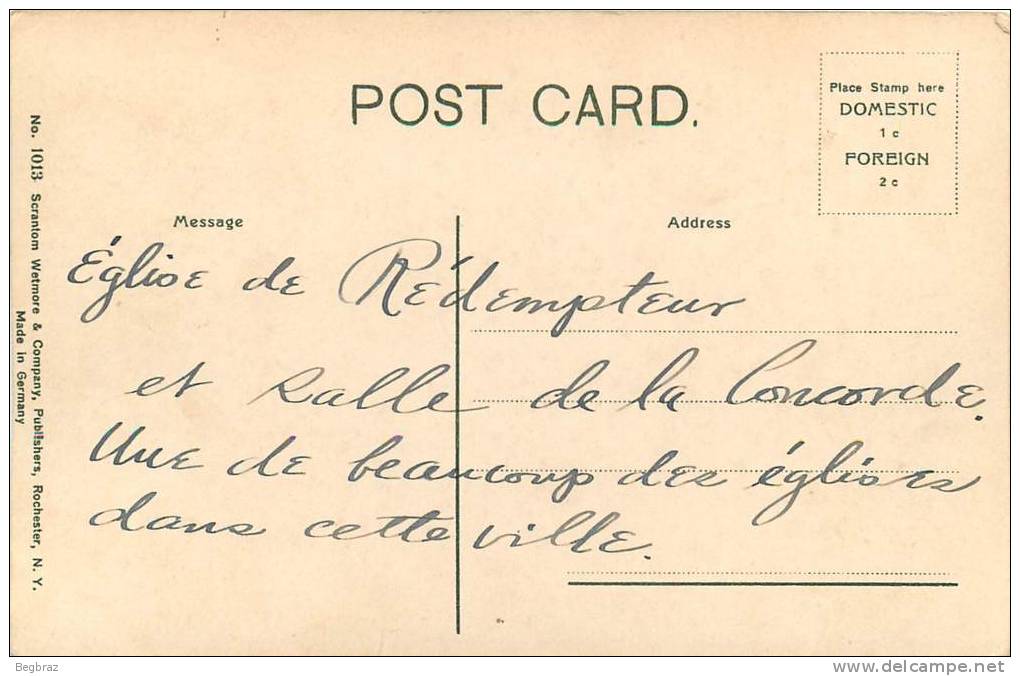 POST CARD.
Place Stamp here
DOMESTIC
1 c
FOREIGN
2 c
Message
Address
Église de Rédempteur
et salle de la Concorde.
Une de beaucoup des églises
dans cette ville.
No. 1013 Scrantom Wetmore & Company, Publishers, Rochester, N. Y.
Made in Germany
Begbraz
www.delcampe.net